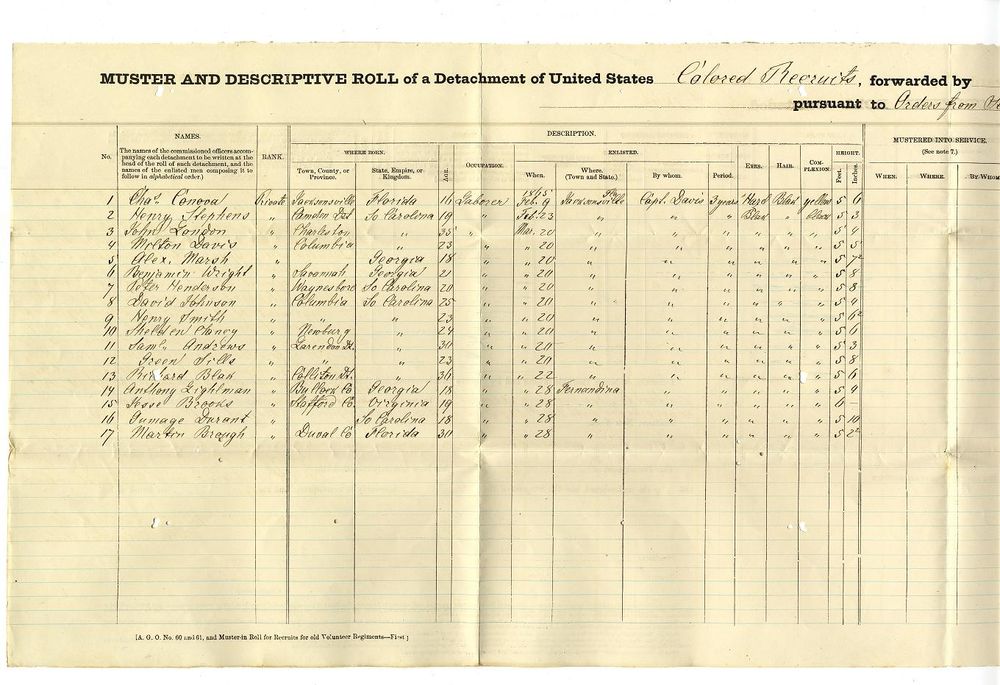 MUSTER AND DESCRIPTIVE ROLL of a Detachment of United States Colored Recruits, forwarded by
pursuant to Orders from
No.
NAMES.
The names of the commissioned officers accompanying each detachment to be written at the head of the roll of such detachment, and the names of the enlisted men composing it to follow in alphabetical order.)
RANK.
DESCRIPTION.
WHERE BORN.
Town, County, or Province.
State, Empire, or Kingdom.
AGE.
OCCUPATION.
ENLISTED.
When.
Where. (Town and State.)
By whom.
Period.
EYES.
HAIR.
COMPLEXION.
HEIGHT.
Feet.
Inches.
MUSTERED INTO SERVICE.
(See note 7.)
WHEN.
WHERE.
BY WHOM
1 Chas. Private Jacksonville Florida 16 Laborer 1865 Feb. 9 Jacksonville Fla Capt. Davis 3 years Blak yellow 5 6
2 Henry Stephens " Camden Dst So Carolina 19 " Feb. 23 " " " Blak " Black 5 3
3 John London " Charleston " 35 " Mar. 20 " " " " " " 5 4
4 Melton Davis " Columbia " 23 " " 20 " " " " " " 5 5
5 Alex. Marsh " Georgia 18 " " 20 " " " " " " 5 7
6 Benjamin Wright " Savannah Georgia 21 " " 20 " " " " " " 5 8
7 Peter Henderson " Waynesboro So Carolina 20 " " 20 " " " " " " 5 8
8 David Johnson " Columbia So Carolina 25 " " 20 " " " " " " 5 4
9 Henry Smith " " " 23 " " 20 " " " " " " 5 6
10 " Newburg " 24 " " 20 " " " " " " 5 6
11 Saml. Andrews " Larendon Dt. " 30 " " 20 " " " " " " 5 3
12 Green Sills " " " 23 " " 20 " " " " " " 5 8
13 Blak " Colliton Dt. " 36 " " 22 " " " " " " 5 6
14 Anthony Lightman " Bullock Co Georgia 18 " " 28 Fernandina " " " " " 5 4
15 Jesse Brooks " Stafford Co. Virginia 19 " " 28 " " " " " " 6 —
16 Durant " So Carolina 18 " " 28 " " " " " " 5 10
17 Martin Brough " Duval Co Florida 30 " " 28 " " " " " " 5 2
[A. G. O. No. 60 and 61, and Muster-in Roll for Recruits for old Volunteer Regiments—First]